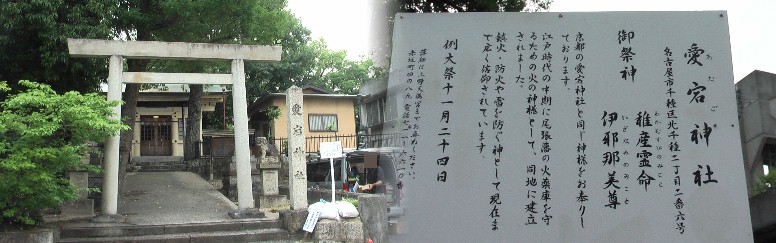 愛宕神社
あたご
愛宕神社
名古屋市千種区上千種二丁目二番六号
御祭神
わむすびのみこと
稚産霊命
いざなみのみこと
伊耶那美尊
京都の愛宕神社と同じ神様をお奉りし
ております。
江戸時代の中期に尾張藩の火薬庫を守
るための火の神様として、同地に建立
されました。
鎮火・防火や雷を防ぐ神として現在ま
で広く信仰されています。
例大祭十一月二十四日